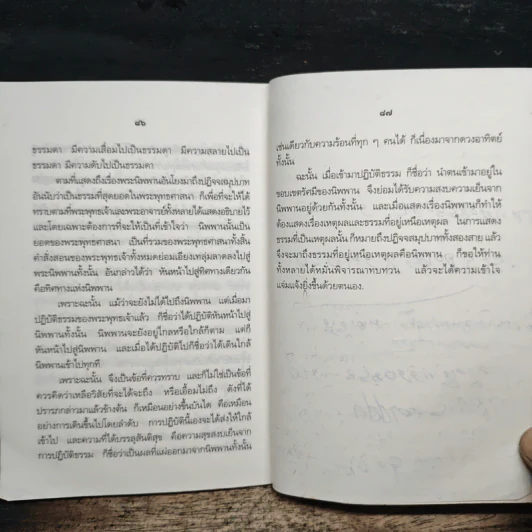 ๘๖
ธรรมดา มีความเสื่อมไปเป็นธรรมดา มีความสลายไปเป็น
ธรรมดา มีความดับไปเป็นธรรมดา
ตามที่แสดงถึงเรื่องพระนิพพานอันโยงมาถึงปฏิจจสมุปบาท
อันนับว่าเป็นธรรมที่สุดยอดในพระพุทธศาสนา ก็เพื่อที่จะให้ได้
ทราบตามที่พระพุทธเจ้าและพระอาจารย์ทั้งหลายได้แสดงอธิบายไว้
และโดยเฉพาะต้องการที่จะให้เป็นที่เข้าใจว่า นิพพานนั้นเป็น
ยอดของพระพุทธศาสนา เป็นที่รวมของพระพุทธศาสนาทั้งสิ้น
คำสั่งสอนของพระพุทธเจ้าทั้งหมดย่อมเอียงลุ่มลาดลงไปสู่
พระนิพพานนั้นทั้งนั้น อันกล่าวได้ว่า หันหน้าไปสู่ทิศทางเดียวกัน
คือทิศทางแห่งนิพพาน
เพราะฉะนั้น แม้ว่าจะยังไม่ได้ไปถึงนิพพาน แต่เมื่อมา
ปฏิบัติธรรมของพระพุทธเจ้าแล้ว ก็ชื่อว่าได้ปฏิบัติหันหน้าไปสู่
นิพพานทั้งนั้น นิพพานจะยังอยู่ไกลหรือใกล้ก็ตาม แต่ก็
หันหน้าไปสู่นิพพาน และเมื่อได้ปฏิบัติไปก็ชื่อว่าได้เดินใกล้
นิพพานเข้าไปทุกที
เพราะฉะนั้น จึงเป็นข้อที่ควรทราบ และก็ไม่ใช่เป็นข้อที่
ควรคิดว่าเหลือวิสัยที่จะได้จะถึง หรือเอื้อมไม่ถึง ดังที่ได้
ปรารภกล่าวมาแล้วข้างต้น ก็เหมือนอย่างขึ้นบันได คือเหมือน
อย่างการเดินขึ้นไปโดยลำดับ การปฏิบัตินี้เองจะได้ส่งให้ใกล้
เข้าไป และความที่ได้บรรลุสันติสุข คือความสุขสงบเย็นจาก
การปฏิบัติธรรม ก็ชื่อว่าเป็นผลที่แผ่ออกมาจากนิพพานทั้งนั้น
๘๗
เช่นเดียวกับความร้อนที่ทุก ๆ คนได้ ก็เนื่องมาจากดวงอาทิตย์
ทั้งนั้น
ฉะนั้น เมื่อเข้ามาปฏิบัติธรรม ก็ชื่อว่า นำตนเข้ามาอยู่ใน
ขอบเขตรัศมีของนิพพาน จึงย่อมได้รับความสงบความเย็นจาก
นิพพานอยู่ด้วยกันทั้งนั้น และเมื่อแสดงเรื่องนิพพานก็ทำให้
ต้องแสดงเรื่องเหตุผลและธรรมที่อยู่เหนือเหตุผล ในการแสดง
ธรรมที่เป็นเหตุผลนั้น ก็หมายถึงปฏิจจสมุปบาททั้งสองสาย แล้ว
จึงจะมาถึงธรรมที่อยู่เหนือเหตุผลคือนิพพาน ก็ขอให้ท่าน
ทั้งหลายได้หมั่นพิจารณาทบทวน แล้วจะได้ความเข้าใจ
แจ่มแจ้งยิ่งขึ้นด้วยตนเอง.